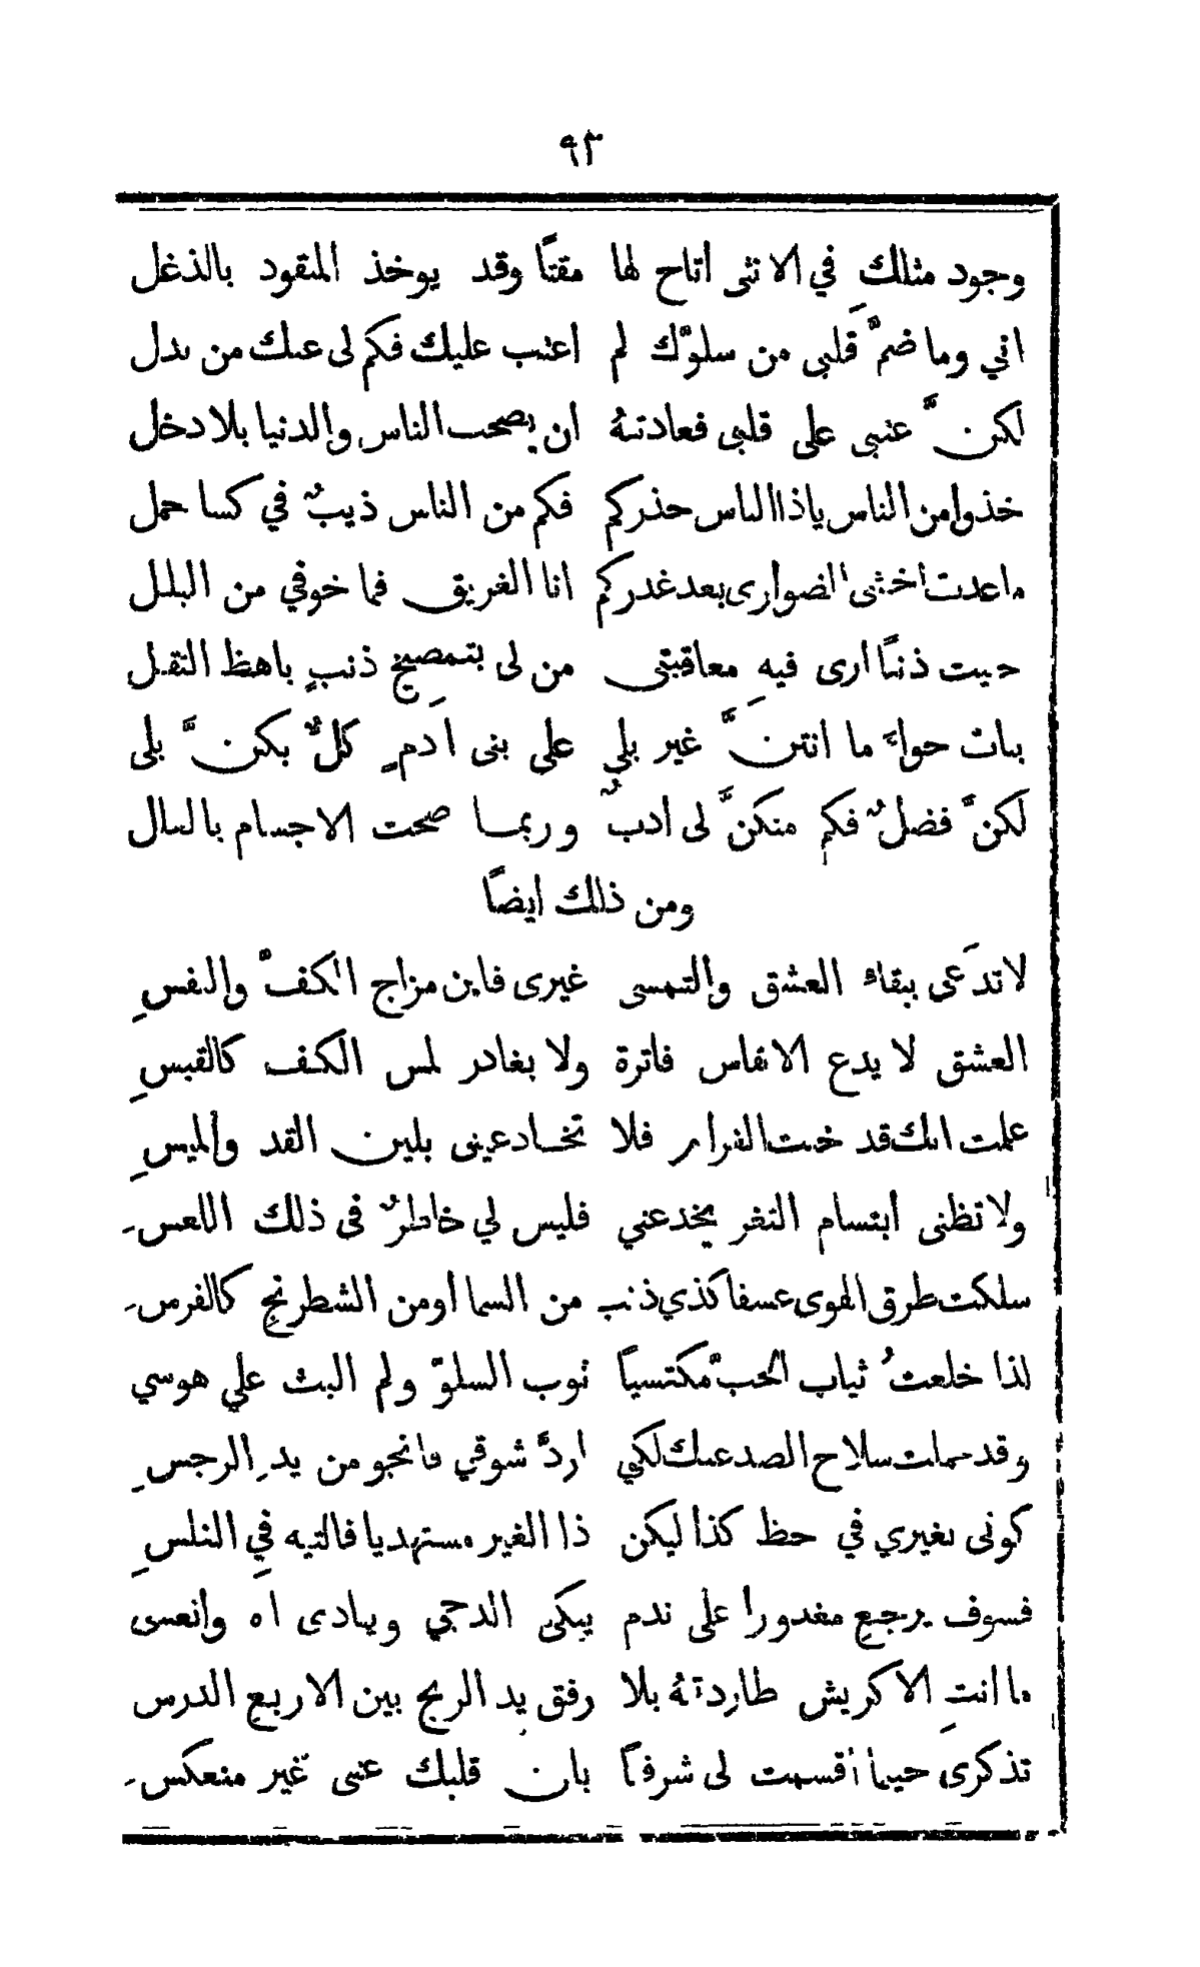 ٩٣
وجود مثلكِ في الانثى اتاح لها مقتًا وقد يوخذ المنقود بالدغل
اني وما ضمَّ قلبي من سلوّك لم اعتب عليك فكم لى عنك من بدل
لكنَّ عتبي على قلبي فعادتهُ ان يصحب الناس والدنيا بلا دخل
خذوا من الناس ياذا الناس حذركم فكم من الناس ذيبٌ في كسا حمل
ماعدت اخشى الضوارى بعد غدركم انا الغريق فما خوفي من البلل
حييت ذنبًا ارى فيهِ معاقبتى من لى بتمصيح ذنبٍ باهظ الثقل
بنات حواءَ ما انتنَّ غير بليٍ على بنى ادمٍ كلٌّ بكنَّ بلى
لكنَّ فضلٌ فكم منكنَّ لى ادبٌ وربما صحت الاجسام بالعلل
ومن ذلك ايضًا
لاتدَعى ببقاء العشق والتمسى غيرى فاين مزاج الكفّ والنفسِ
العشق لا يدع الانفاس فاترة ولا يغادر لمس الكف كالقبسِ
علمت انك قد خنت الغرام فلا تخادعينى بلين القد والميسِ
ولا تظنى ابتسام الثغر يخدعني فليس لي خاطرٌ فى ذلك اللعسِ
سلكت طرق الهوى عسفا كذي ذنب من السما اومن الشطرنج كالفرسِ
لذا خلعتُ ثياب الحبّ مكتسيًا ثوب السلوّ ولم البث علي هوسي
وقد حملت سلاح الصد عنك لكي اردَّ شوقي فانجو من يدِ الرجسِ
كونى لغيري في حظ كذا ليكن ذا الغير مستهديا فالتيه فيِ الغلسِ
فسوف يرجع مغدورا على ندم يبكى الدجي وينادى اه وانعسى
ما انتِ الا كريش طاردتهُ بلا رفق يد الريح بين الاربع الدرس
تذكرى حينما اقسمت لى شرفًا بان قلبك عنى غير منعكسِ